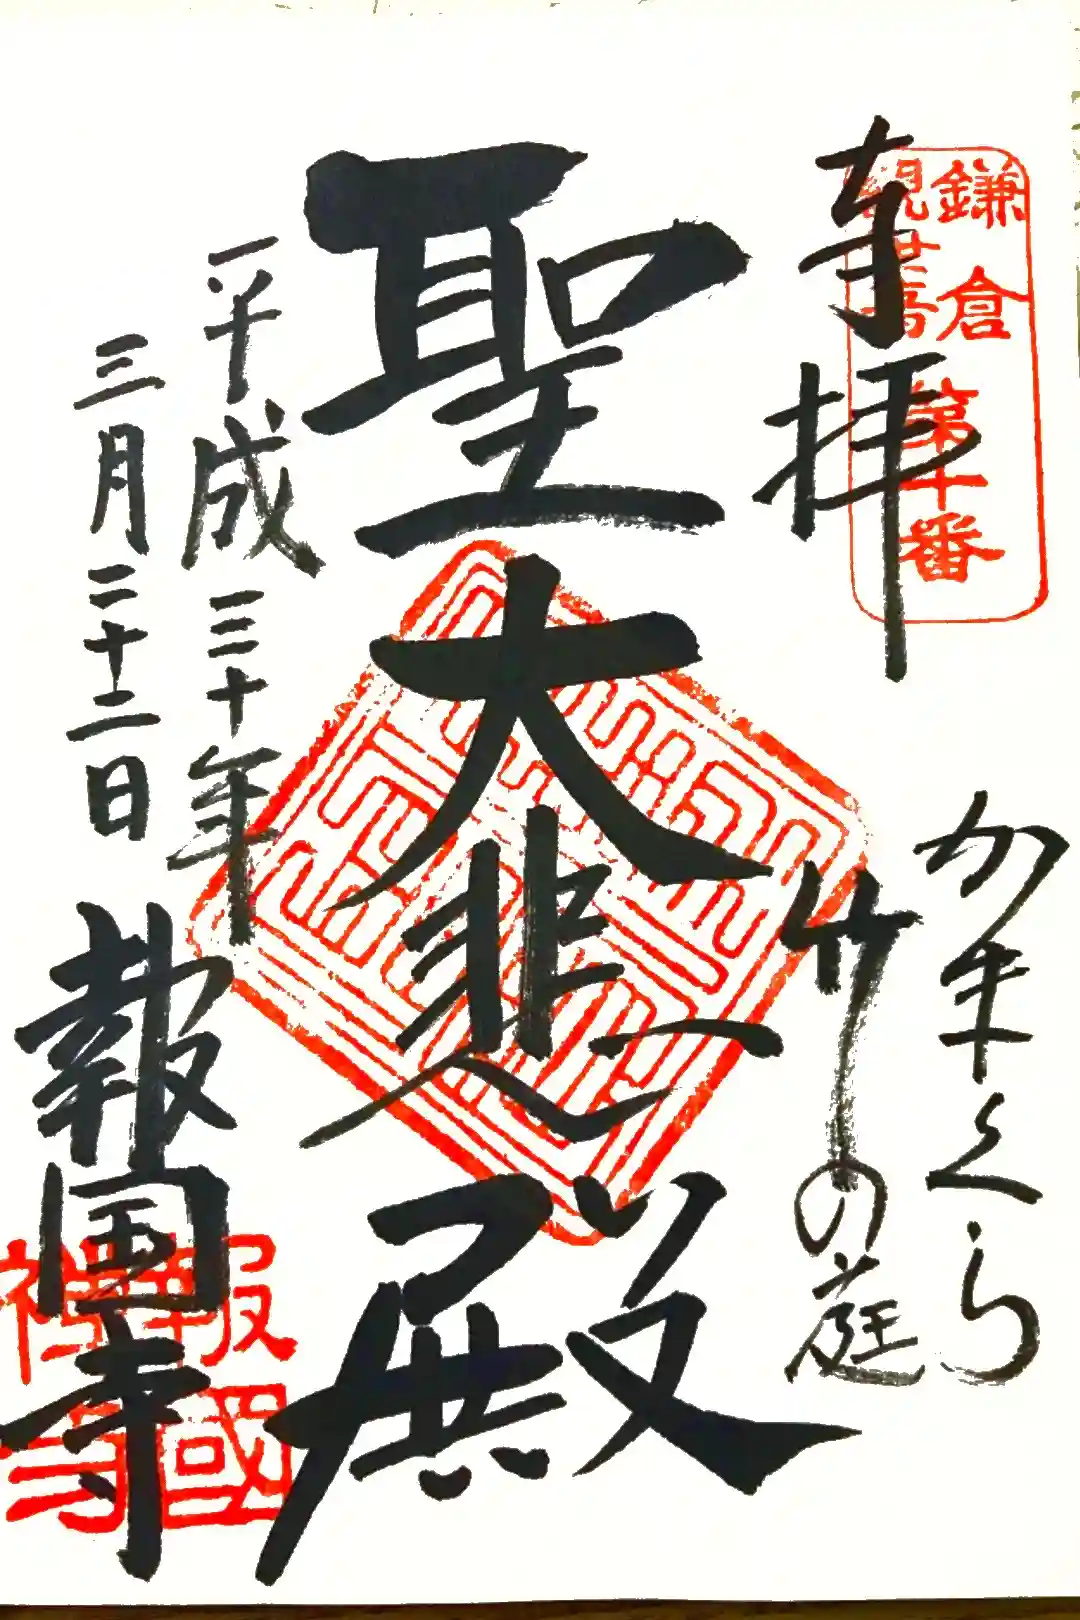 鎌倉
観世音
第十番
奉拝
かまくら
竹の庭
聖大悲殿
平成三十年
三月二十二日
報国寺
報國
禅寺